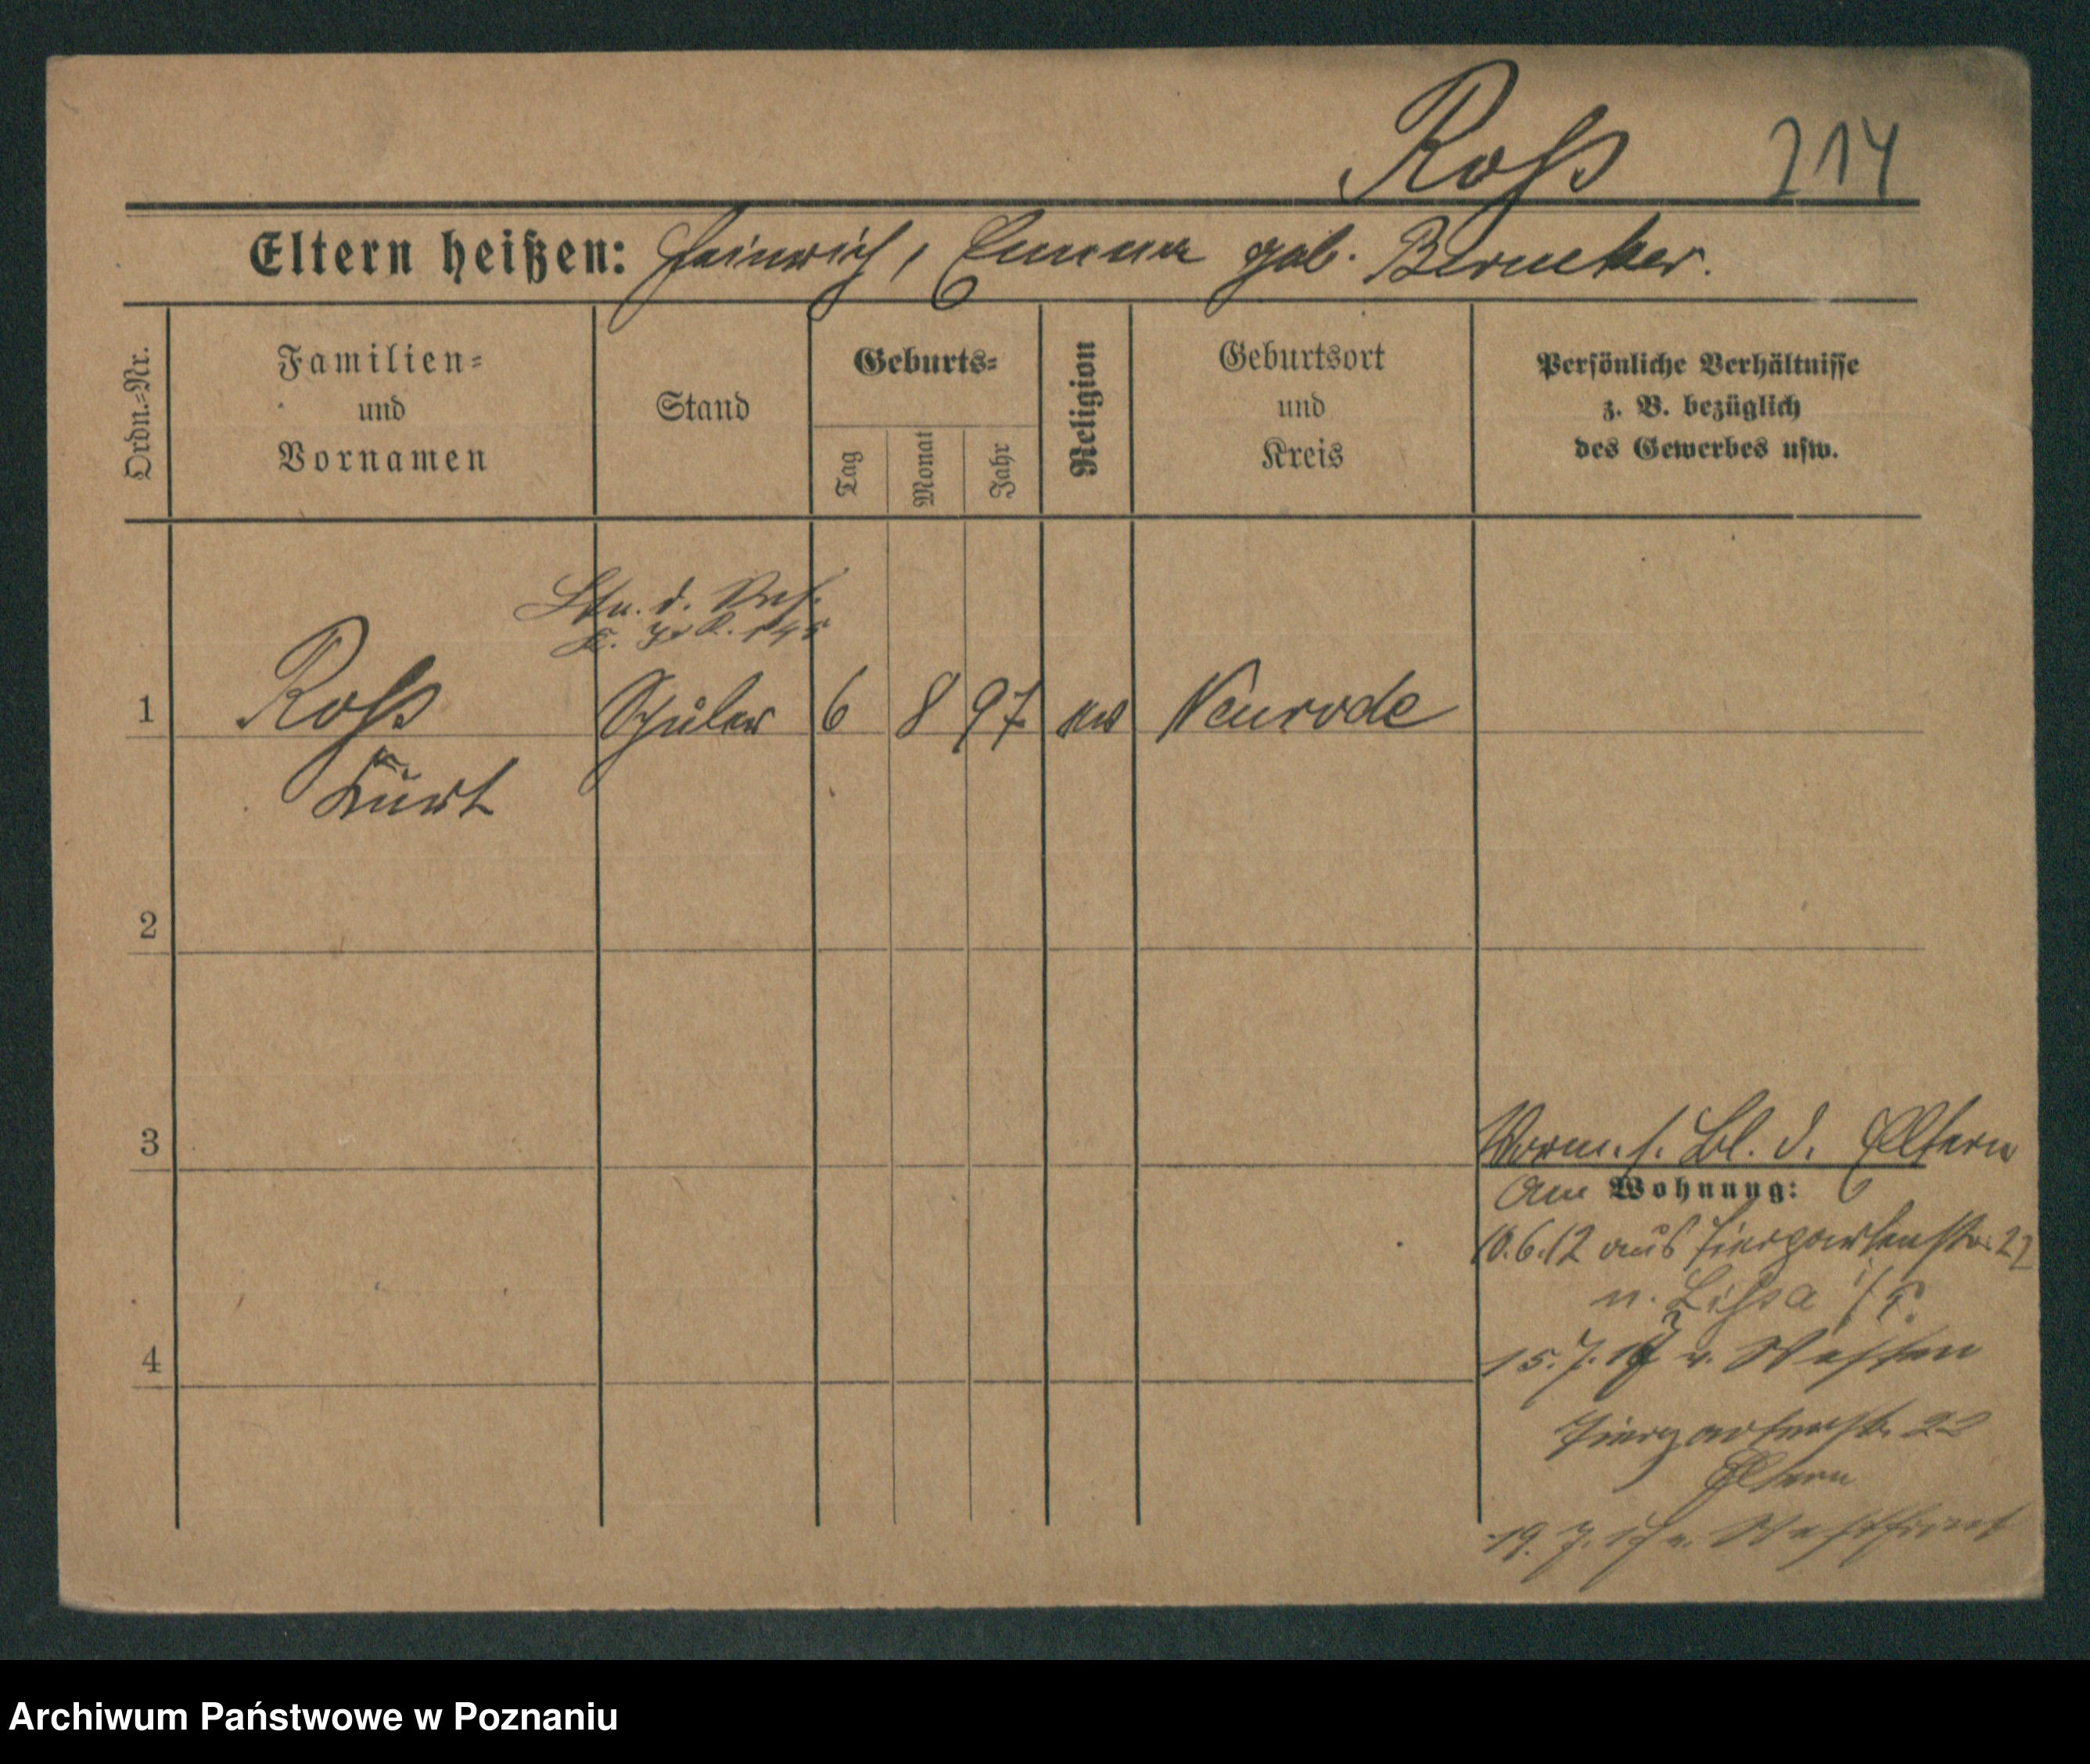 Roß 214
Eltern heißen: Heinrich, Emma geb. Berneker.
Ordn.=Nr.
Familien=
und
Vornamen
Stand
Geburts=
Tag
Monat
Jahr
Religion
Geburtsort
und
Kreis
Persönliche Verhältnisse
z. B. bezüglich
des Gewerbes usw.
Ltn. d. Res.
R. 145
1 Roß Schüler 6 8 97 Neurode
Kurt
2
3
Vorm. s. Bl. d. Eltern
Wohnung:
10.6.12 aus Tiergartenstr. 22
n. Lissa i/P.
4
15.7.17 v. Westen
Tiergartenstr. 22
Eltern
19.7.17 n. Westfront
Archiwum Państwowe w Poznaniu